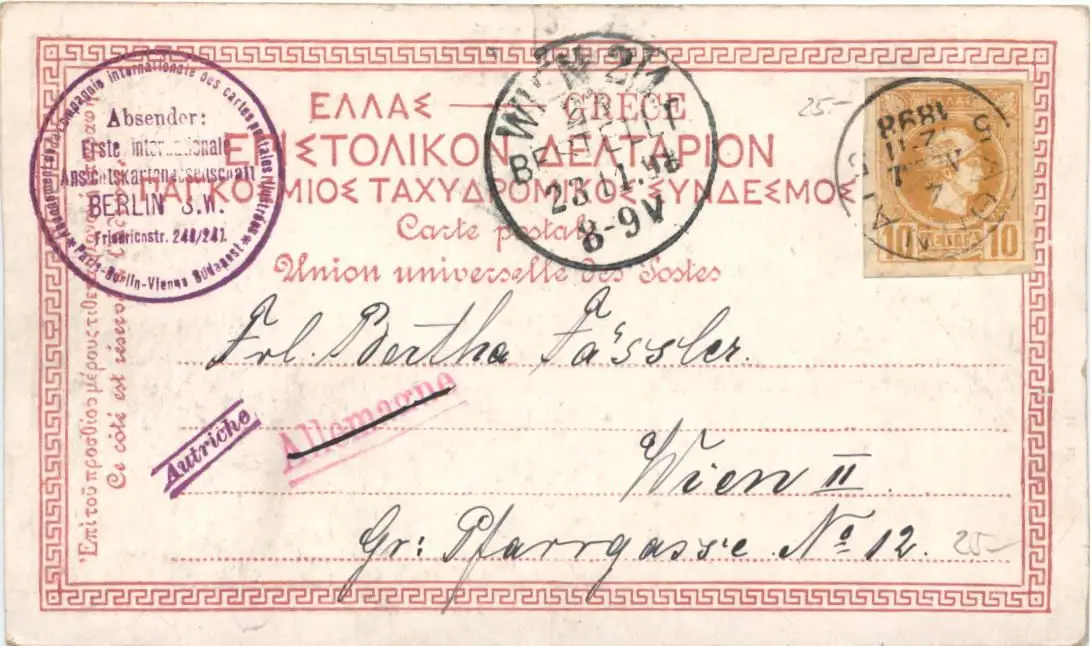 ΕΛΛΑΣ — GRECE
ΕΠΙΣΤΟΛΙΚΟΝ ΔΕΛΤΑΡΙΟΝ
ΠΑΓΚΟΣΜΙΟΣ ΤΑΧΥΔΡΟΜΙΚΟΣ ΣΥΝΔΕΣΜΟΣ
Carte postale
Union universelle des Postes
compagnie internationale des cartes postales illustrées
Paris-Berlin-Vienne Budapest
Absender:
Erste internationale
Ansichtskartengesellschaft
BERLIN S.W.
Friedrichstr. 240/241
WIEN 2/1
BESTELLT
23 11.98
8-9V
25-
1898
10 10
Frl. Bertha Fässler.
Allemagne
Autriche
Wien II
Gr: Pfarrgasse No 12.
25-
Ἐπὶ τοῦ προσθίου μέρους τίθεται
Ce côté est